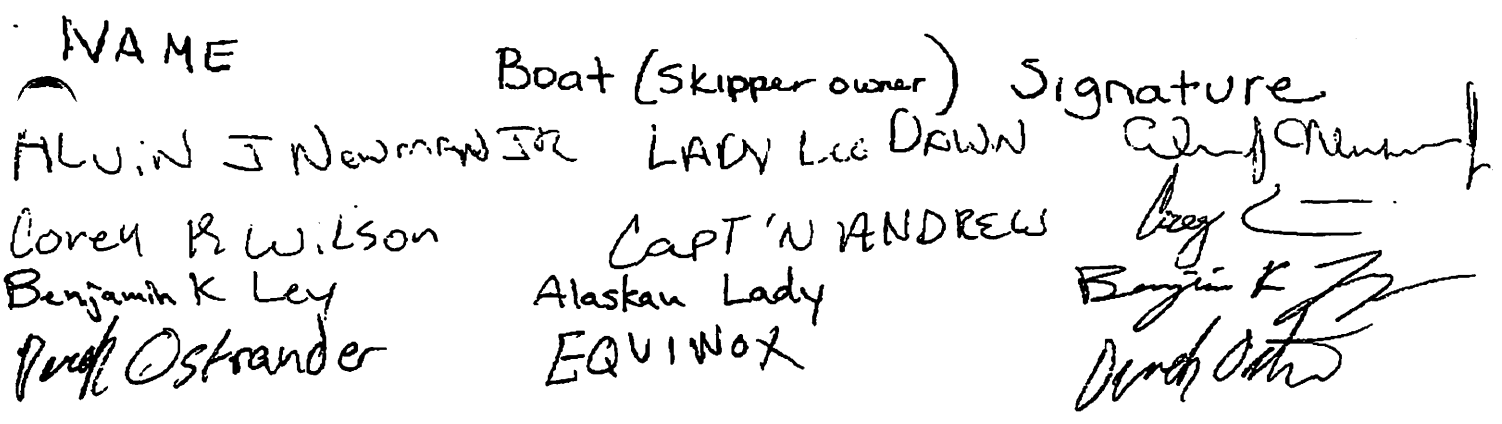 NAME Boat (Skipper owner) Signature
ALviN J Newman JR LADY Lee DAWN
Corey R WiLson CAPT'N ANDREW
Benjamin K Ley Alaskan Lady Benjamin K
Derek Ostrander EQUINOX Derek